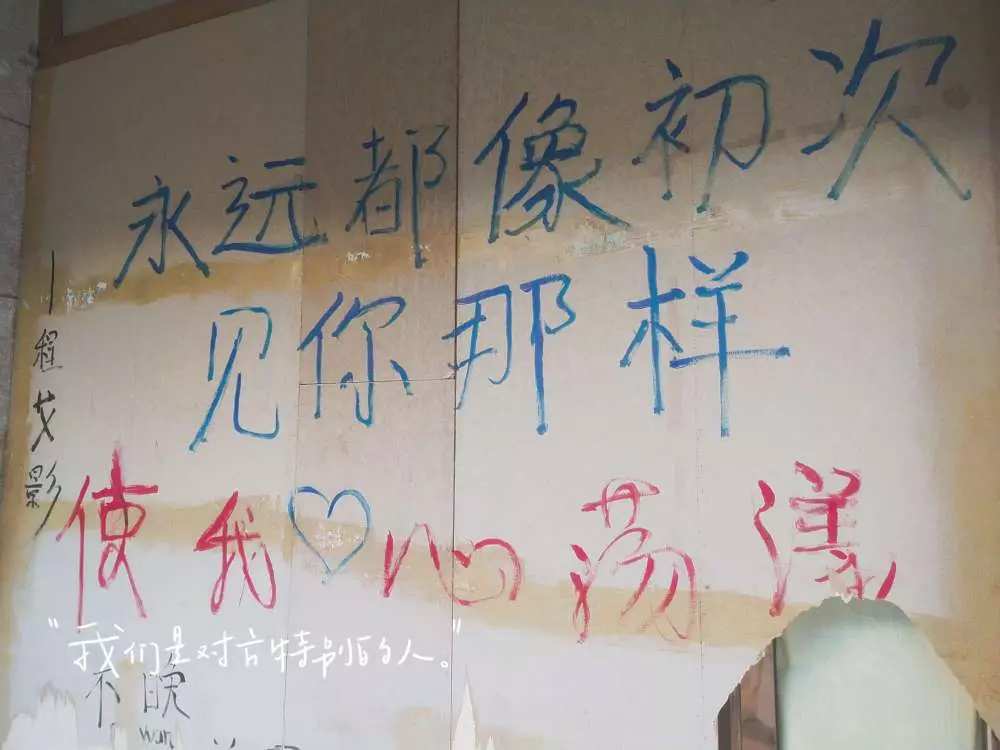 永远都像初次
见你那样
使我♡心荡漾
程艾影
"我们是对方特别的人。"
不晚
wan